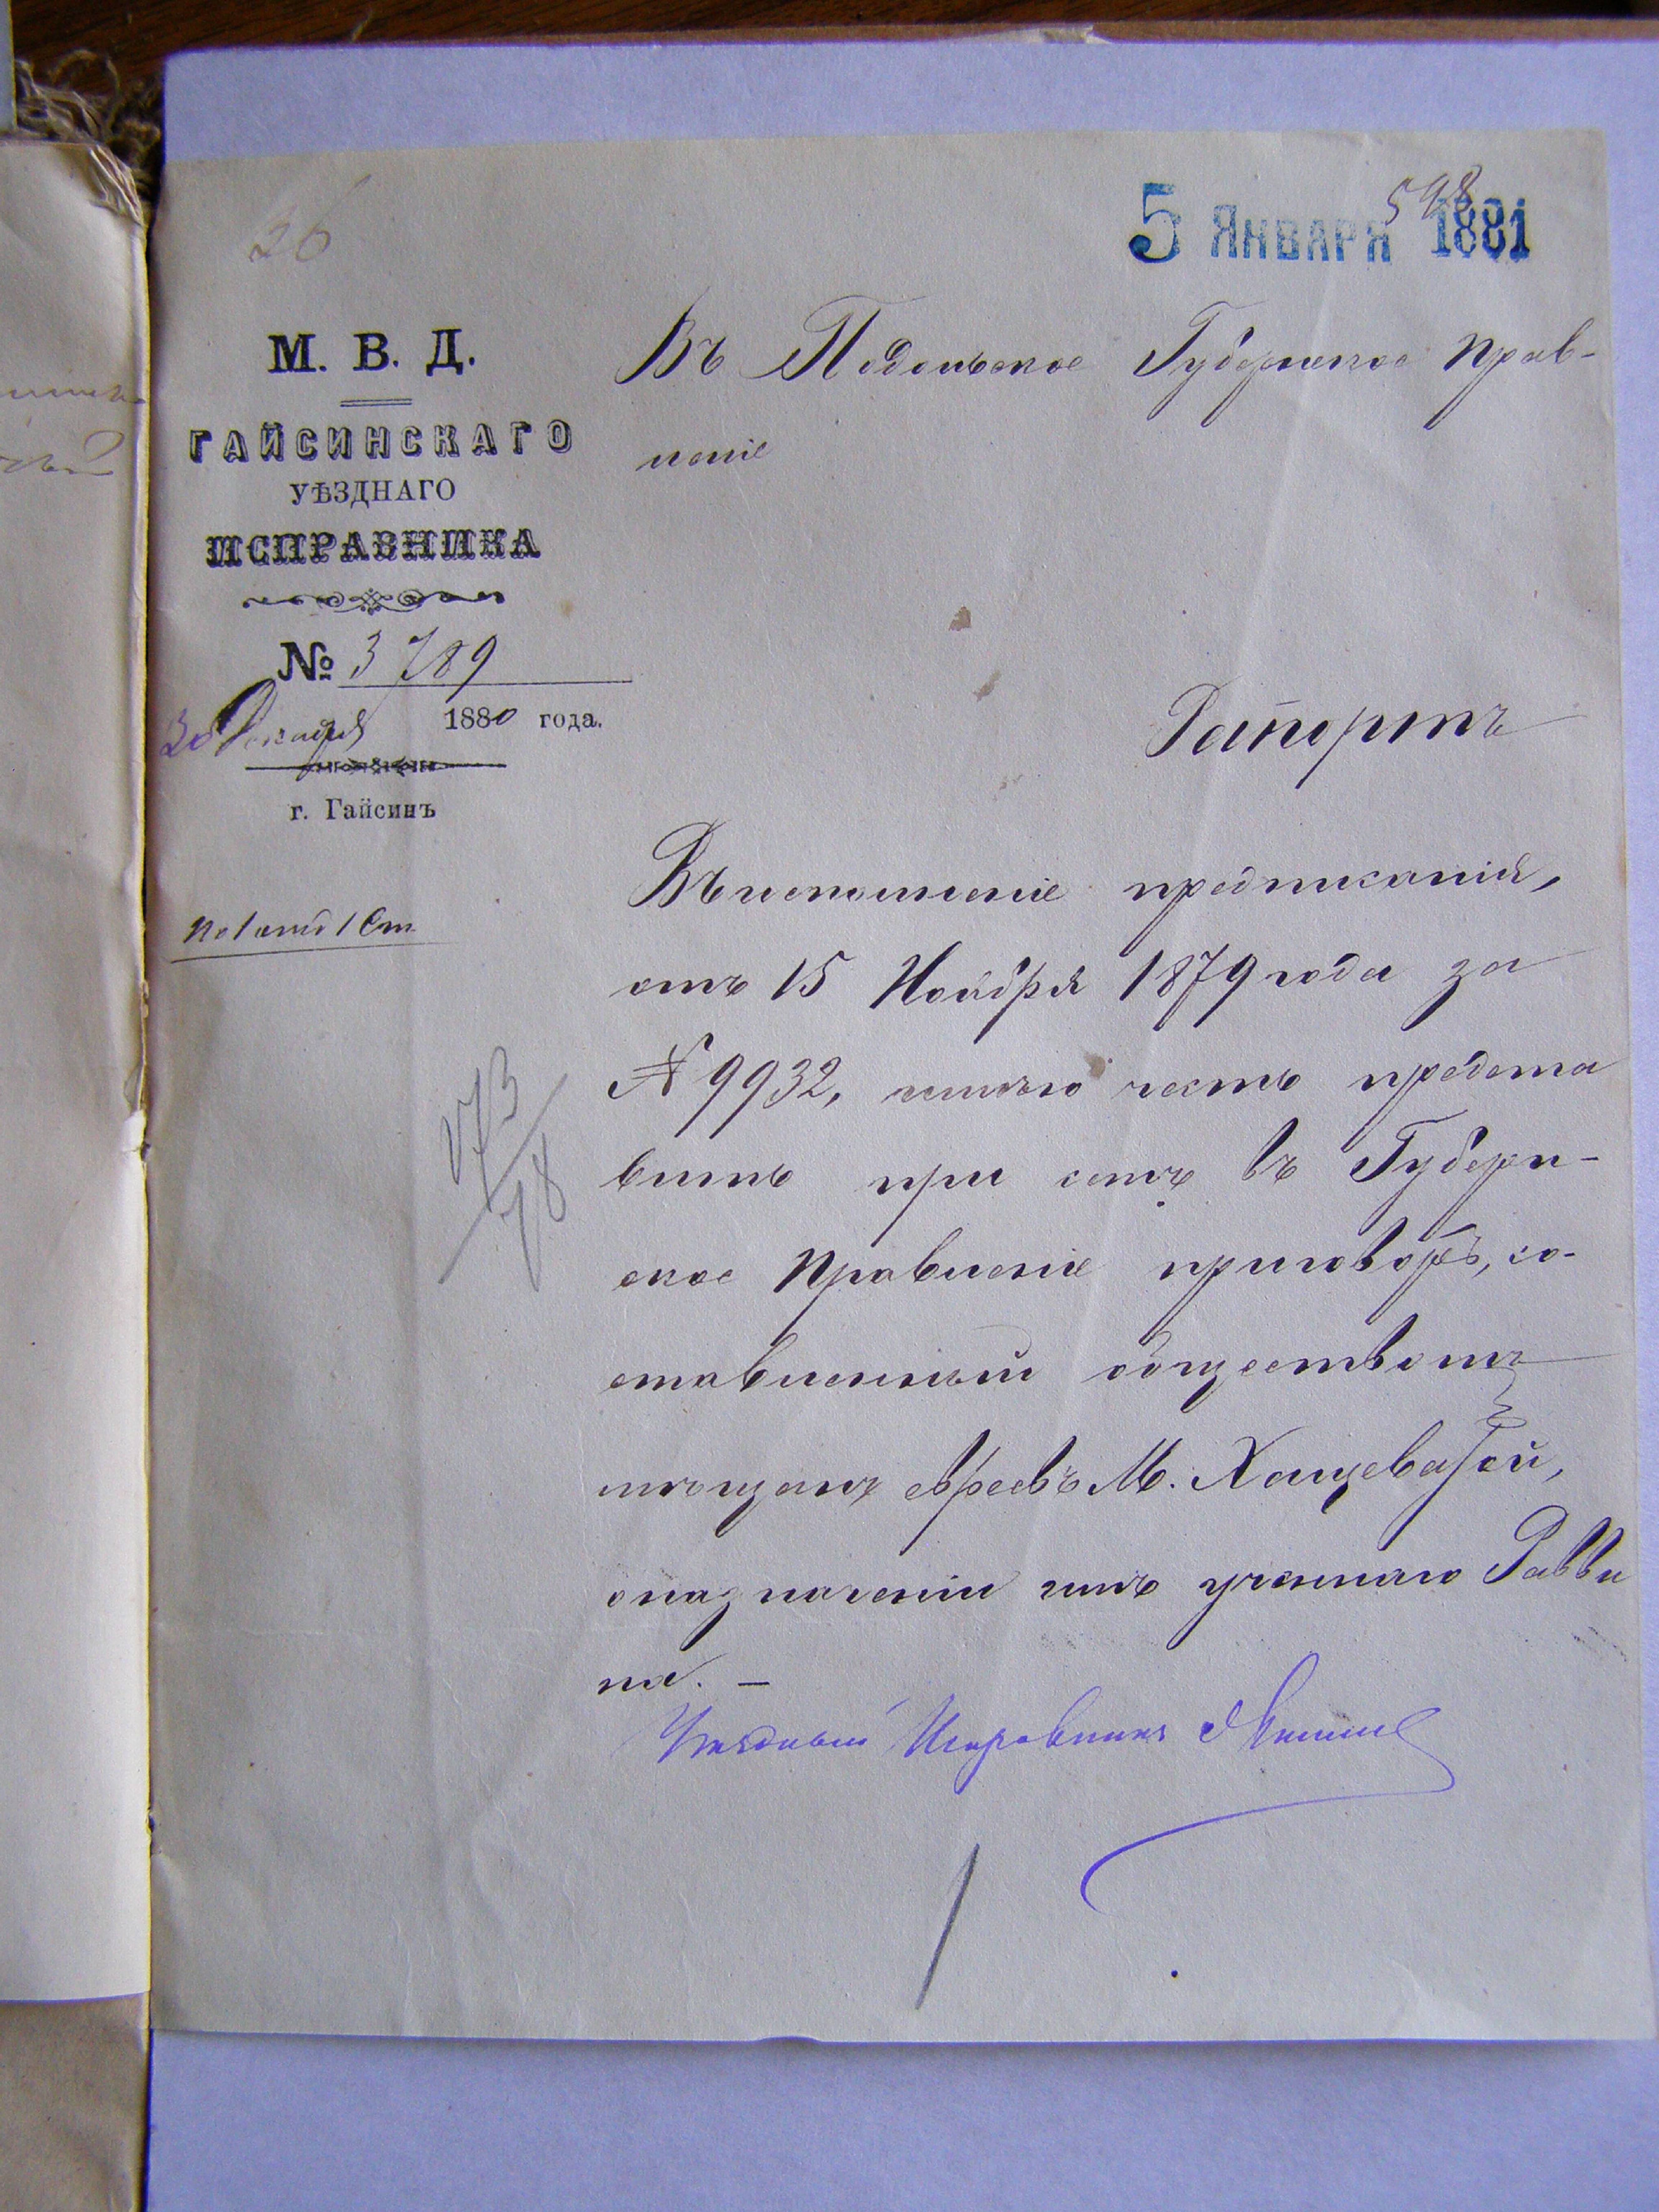 26
5 Января 1881
598
М. В. Д.
ГАЙСИНСКАГО
УѢЗДНАГО
ИСПРАВНИКА
№ 3789
30 Декабря 1880 года.
г. Гайсинъ
№ 1 1 Ст.
173/78
Въ Подольское Губернское Прав-
леніе
Рапортъ
Въ исполненіе предписанія,
отъ 15 Ноября 1879 года за
№ 9932, имѣю честь предста
вить при семъ въ Губерн-
ское Правленіе приговоръ, со-
ставленный обществомъ
мѣщанъ евреевъ М. Хащеватой,
о назначеніи имъ ученаго Равви
на. —
Уѣздный Исправникъ